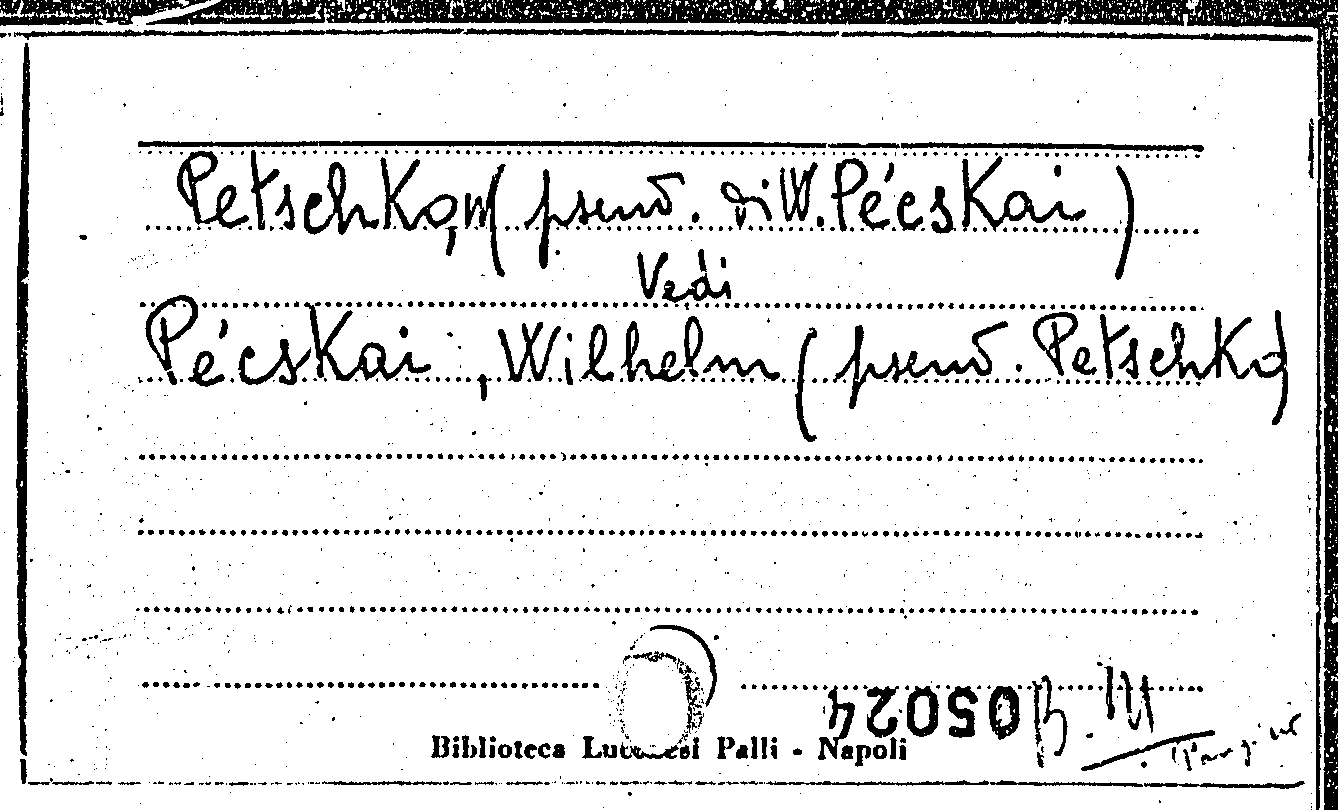 Petschko, W (pseud. di W. Pécskai)
Vedi
Pécskai, Wilhelm (pseud. Petschko)
05024 B. M
Biblioteca Lucchesi Palli - Napoli